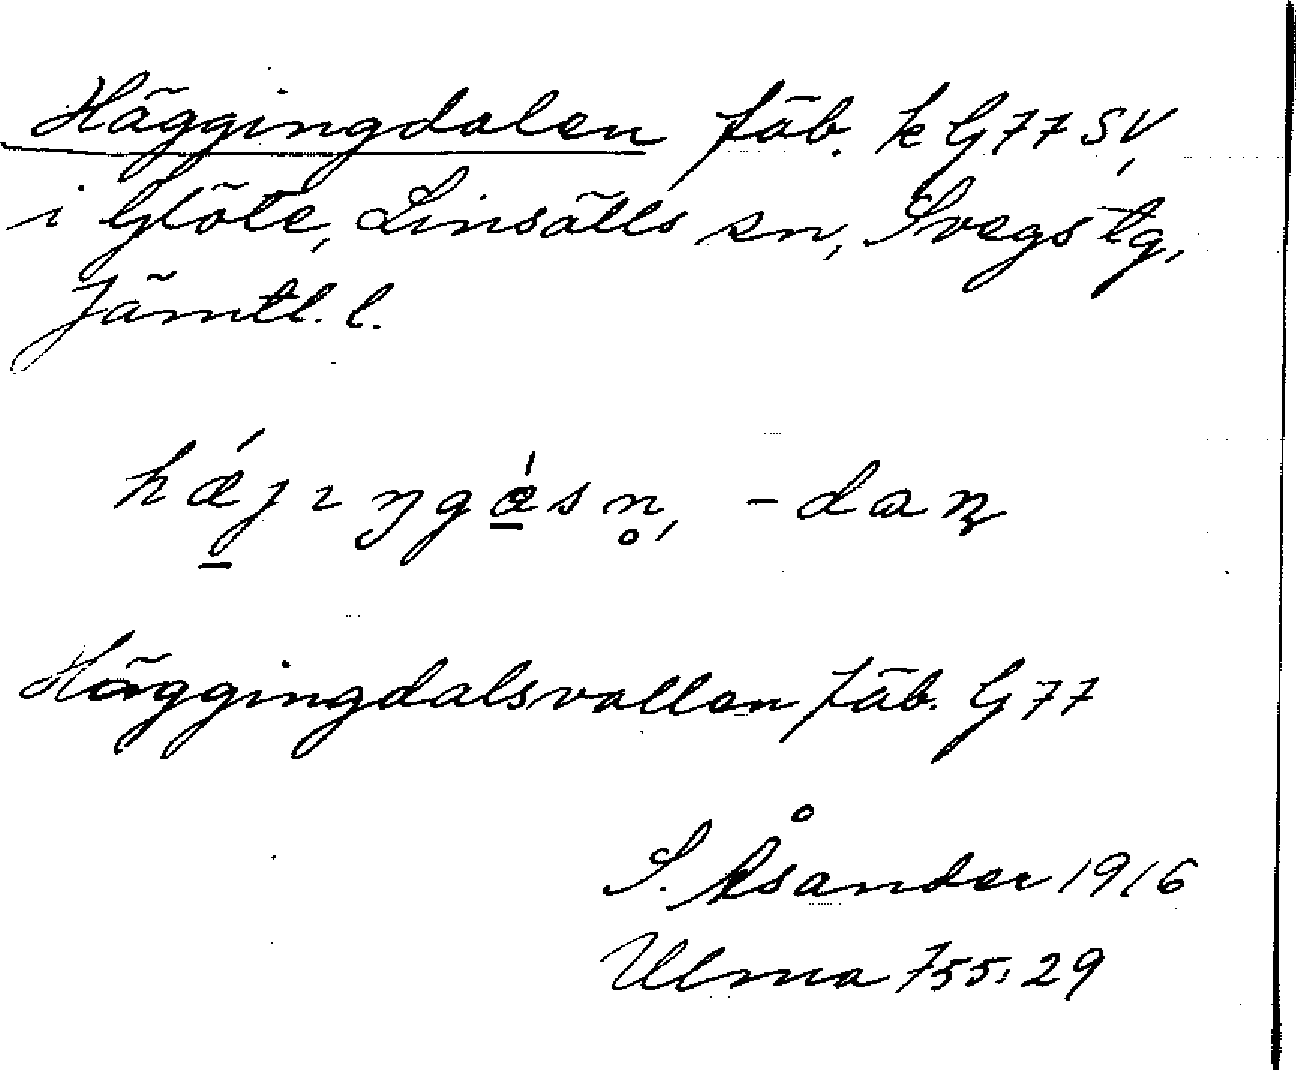 Häggingdalen fäb. k G 77 SV,
i Glöte, Linsälls sn, Svegs tg,
Jämtl. l.
hǽjıŋgǽsn̥, -daɳ
Häggingdalsvallen fäb. G 77
S. Åsander 1916
Ulma 755:29